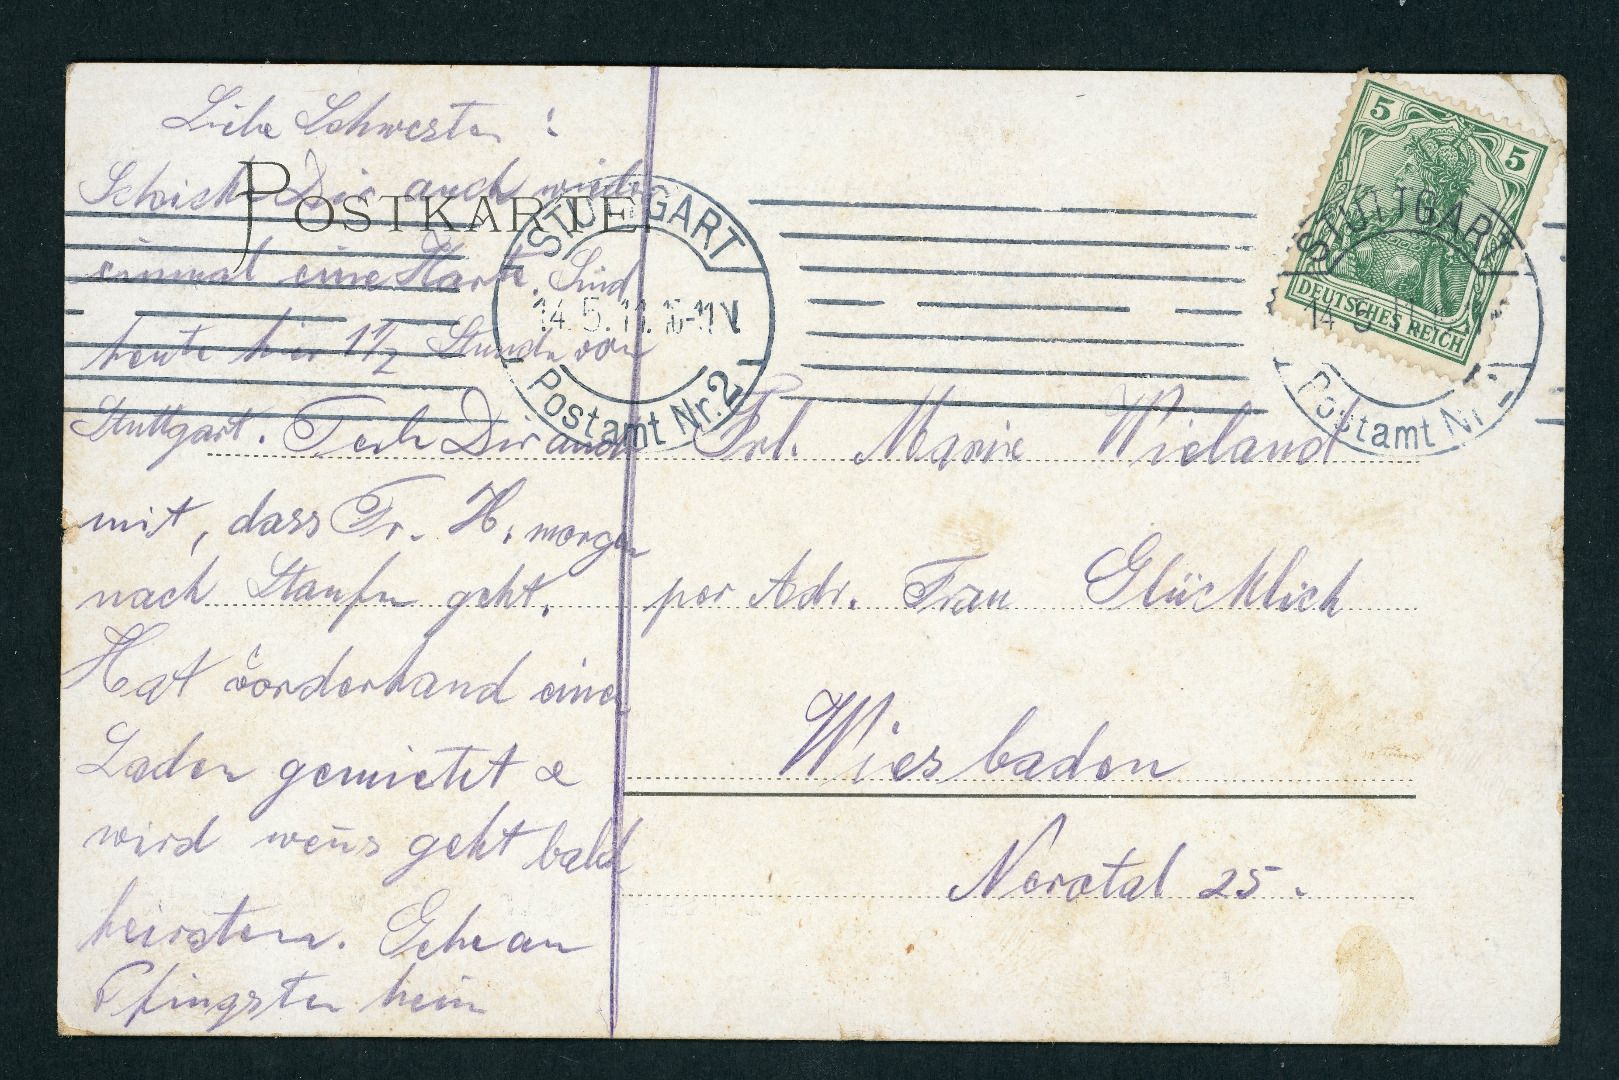 Liebe Schwester !
Schicke Dir auch wieder
einmal eine Karte. Sind
heute hier 1 1/2 Stunde von
Stuttgart. Teile Dir auch
mit, dass Fr. H. morgen
nach Staufen geht.
Hat vorderhand einen
Laden gemietet &
wird wen̄s geht bald
heiraten. Gehe an
Pfingsten heim
POSTKARTE
STUTTGART
14.5.11. 10-11 V.
Postamt Nr. 2
5
5
DEUTSCHES REICH
STUTTGART
14. 5
Postamt Nr.
Frl. Marie Wieland
per Adr. Frau Glücklich
Wiesbaden
Nerotal 25.